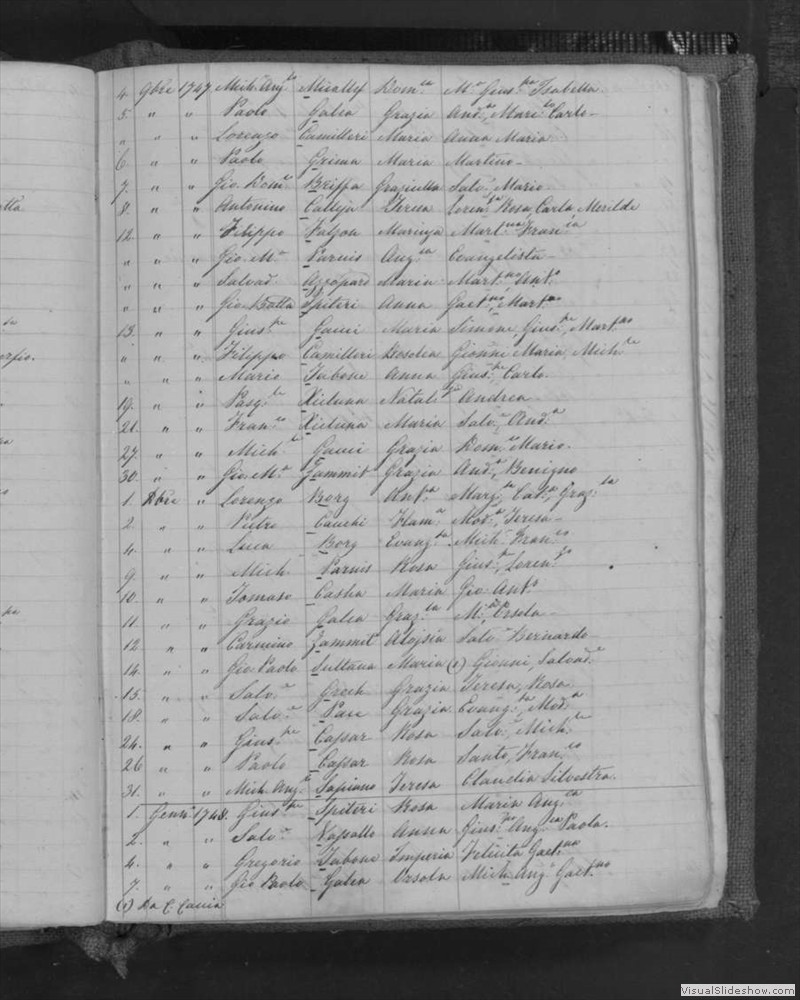 4. 9bre 1747 Mich: Ang:lo Micallef Dom:ca M:a Gius:pa Isabella
5. " " Paolo Galea Grazia And:a, Mari: Carlo
" " " Lorenzo Camilleri Maria Anna Maria
6. " " Paolo Grima Maria Martino
7. " " Gio: Dom:co Briffa Graziulla Salv:, Mario
8. " " Antonino Calleja Teresa Loren:za Rosa, Carla Merilda
12. " " Filippo Falzon Maruzza Mart:na Fran:ca
" " " Gio: M:a Parnis Ang:ca Evangelista
" " " Salvad:e Azzopard Maria Mart:no Ant:o
" " " Gio: Batta Spiteri Anna Gaet:no, Mart:no
13. " " Gius:pe Gauci Maria Simone, Gius:pe, Mart:no
" " " Filippo Camilleri Rosolea Gionni Maria, Mich:le
" " " Mario Tabone Anna Gius:pe, Carlo
19. " " Pasq:le Xicluna Natal:zia Andrea
21. " " Fran:co Xicluna Maria Salv:e, And:a
27. " " Mich:le Gauci Grazia Dom:co Mario
30. " " Gio: M:a Zammit Grazia And:a, Benigno
1. Xbre " " Lorenzo Borg Ant:a Marg:ta, Cat:a, Graz:la
2. " " Pietro Cauchi Flam:a Mod:a, Teresa
4. " " Luca Borg Evang:ta Mich: Fran:co
9. " " Mich: Parnis Rosa Gius:pe, Loren:zo
10. " " Tomaso Casha Maria Gio: Ant:o
11. " " Grazio Galea Graz:la M:a Orsola
12. " " Carmino Zammit Aloysia Salv:e Bernardo
14. " " Gio: Paolo Sultana Maria (1) Gionni, Salvad:e
15. " " Salv:e Grech Grazia Teresa, Rosa
18. " " Salv:e Pace Grazia Evang:ta, Mod:a
24. " " Gius:pe Cassar Rosa Salv:e, Mich:le
26 " " Paolo Cassar Rosa Santo, Fran:co
31. " " Mich: Ang:lo Sapiano Teresa Claudia Silvestra.
1. Genn:o 1748. Gius:pe Spiteri Rosa Maria Ang:ca
2. " " Salv:e Vassallo Anna Gius:pa Ang:ca Paola.
4. " " Gregorio Tabone Imperia Felicita Gaet:na
7. " " Gio: Paolo Galea Orsola Mich: Ang:lo Gaet:no
(1) Da C.
VisualSlideshow.com